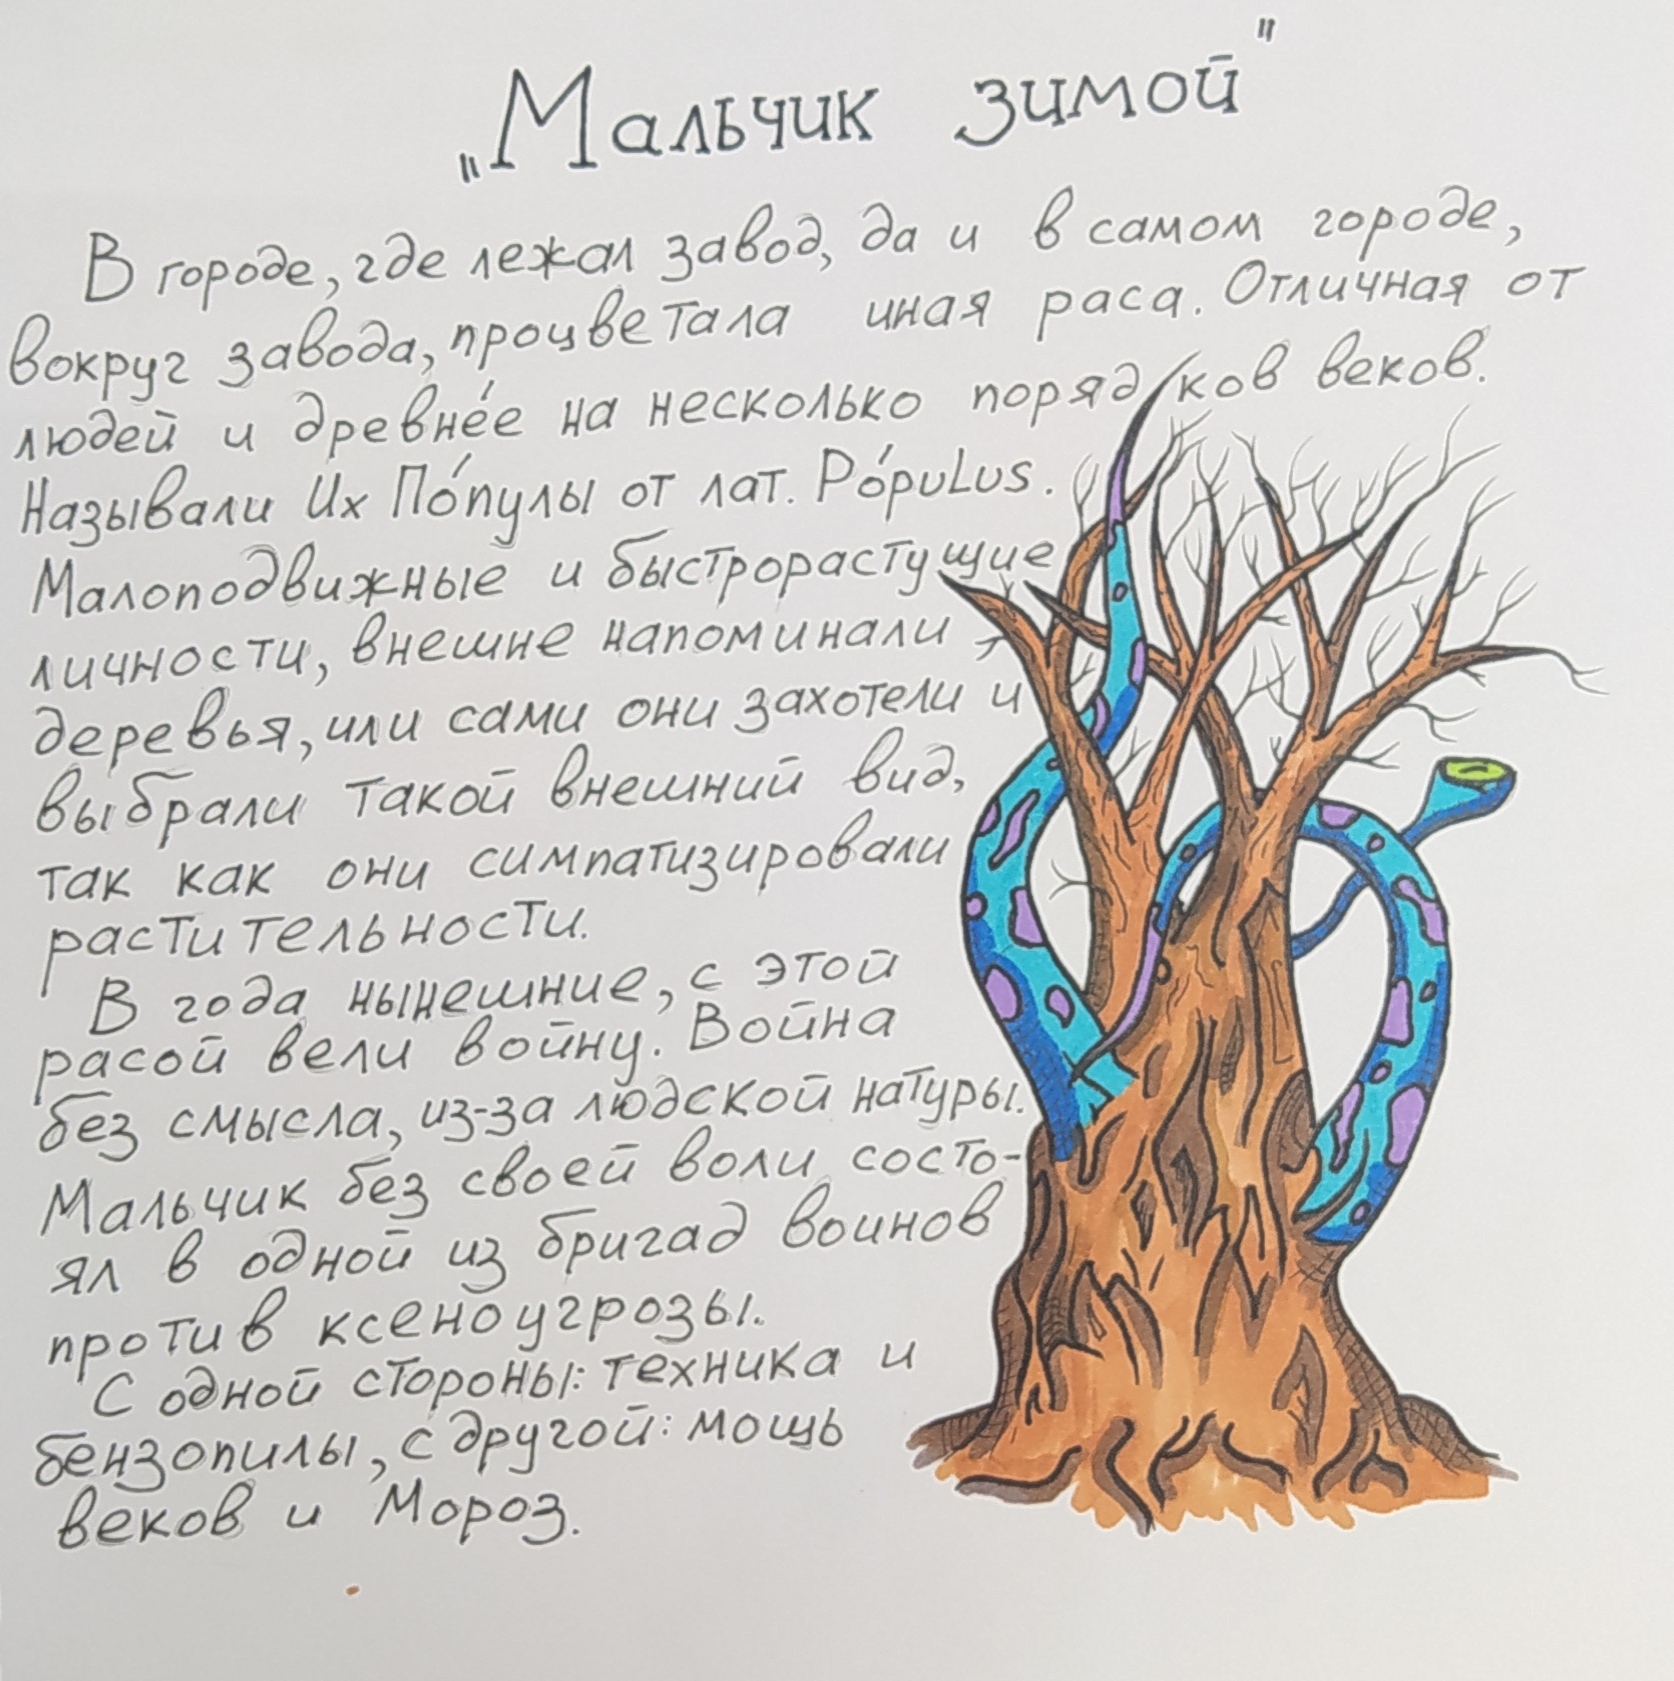 „Мальчик зимой"
В городе, где лежал завод, да и в самом городе,
вокруг завода, процветала иная раса. Отличная от
людей и древне́е на несколько порядков веков.
Называли Их По́пулы от лат. Pópulus.
Малоподвижные и быстрорастущие
личности, внешне напоминали
деревья, или сами они захотели и
выбрали такой внешний вид,
так как они симпатизировали
растительности.
В года нынешние, с этой
расой вели войну. Война
без смысла, из-за людской натуры.
Мальчик без своей воли состо-
ял в одной из бригад воинов
против ксеноугрозы.
С одной стороны: техника и
бензопилы, с другой: мощь
веков и Мороз.